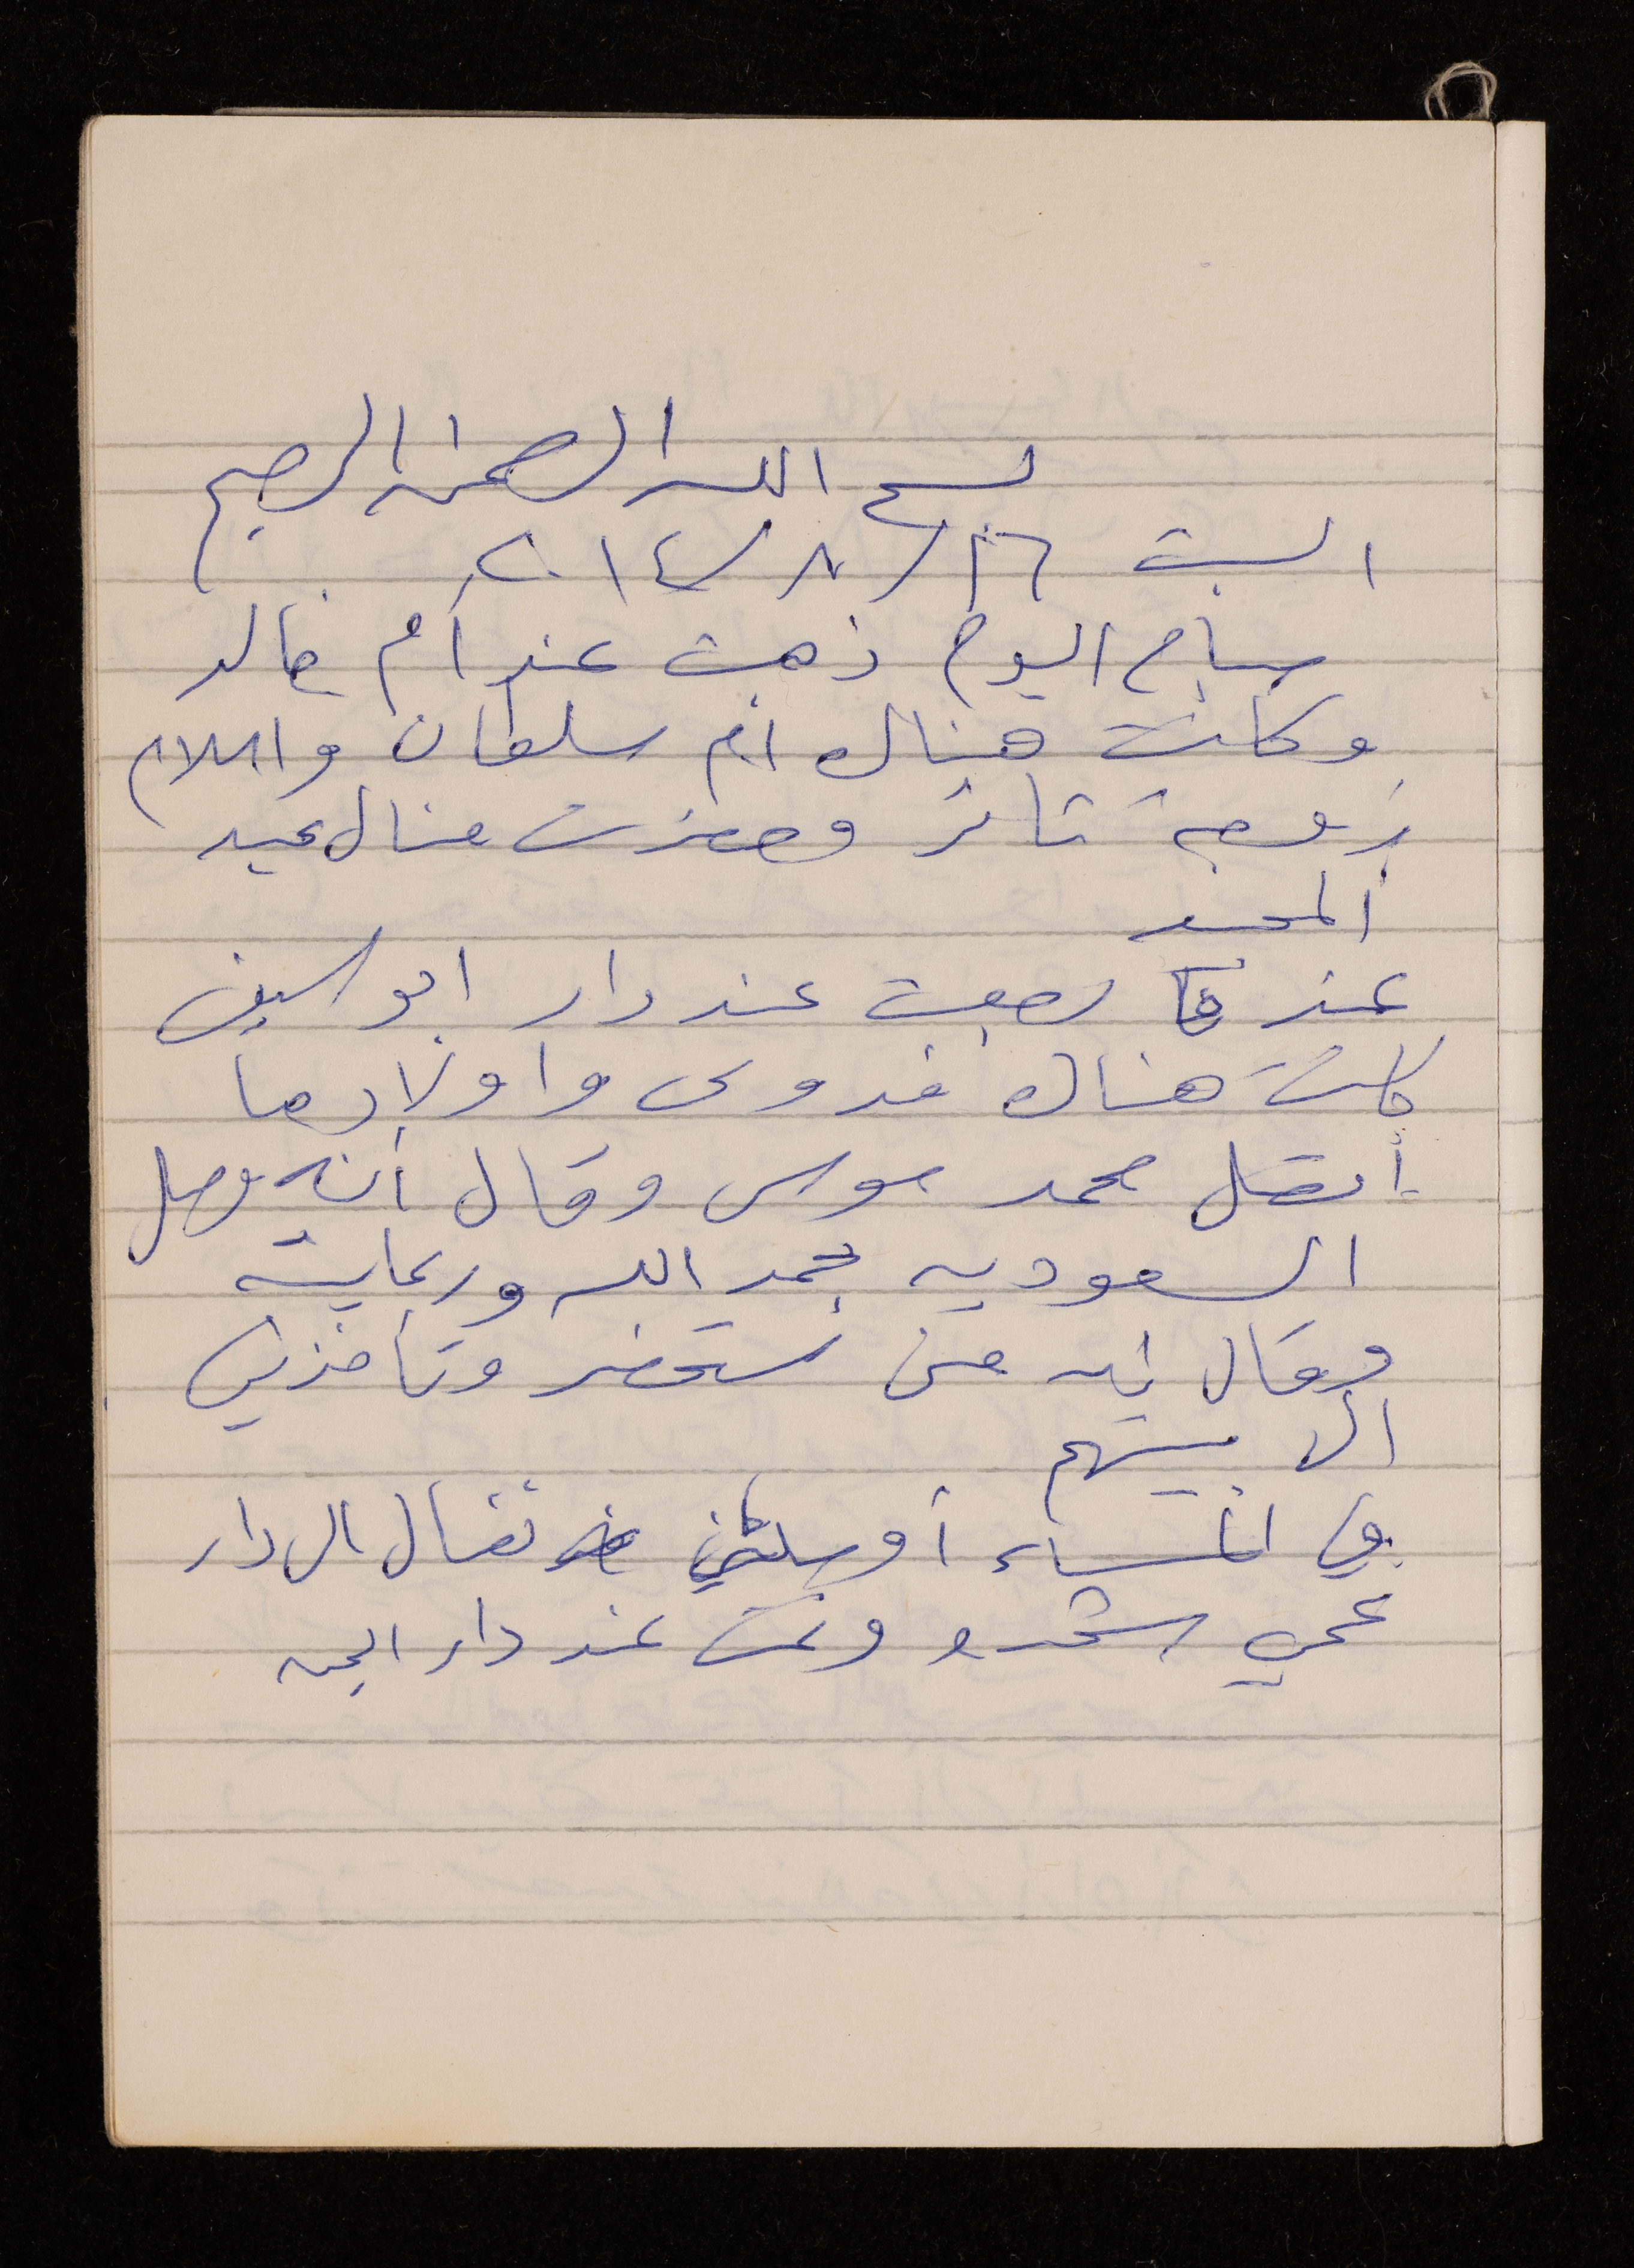 بسم الله الرحمن الرحيم
السبت ١٦/٨/٢٠١٤
صباح اليوم ذهبت عند أم خالد
وكانت هناك ام سلطان واسلام
زوجة ثائر وحضرت منال عبد
المجيد
عندما رجعت عند دار ابو سيف
كانت هناك فدوى واولادها
اتصل محمد موسى وقال أنه وصل
السعوديه بحمد الله ورعايته
وقال انه منى ستحضر وتأخذني
الى بيتهم
في المساء أوصلتني نضال الى دار
عمي شحده ونمت عند دار